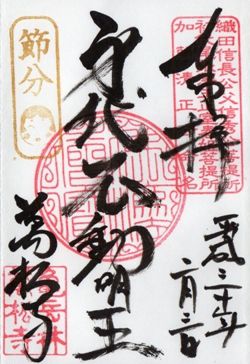 奉拝
織田信長公父信秀
菩提所
加藤清正
命名
平成三十年
二月三日
身代不動明王
節分
萬松寺